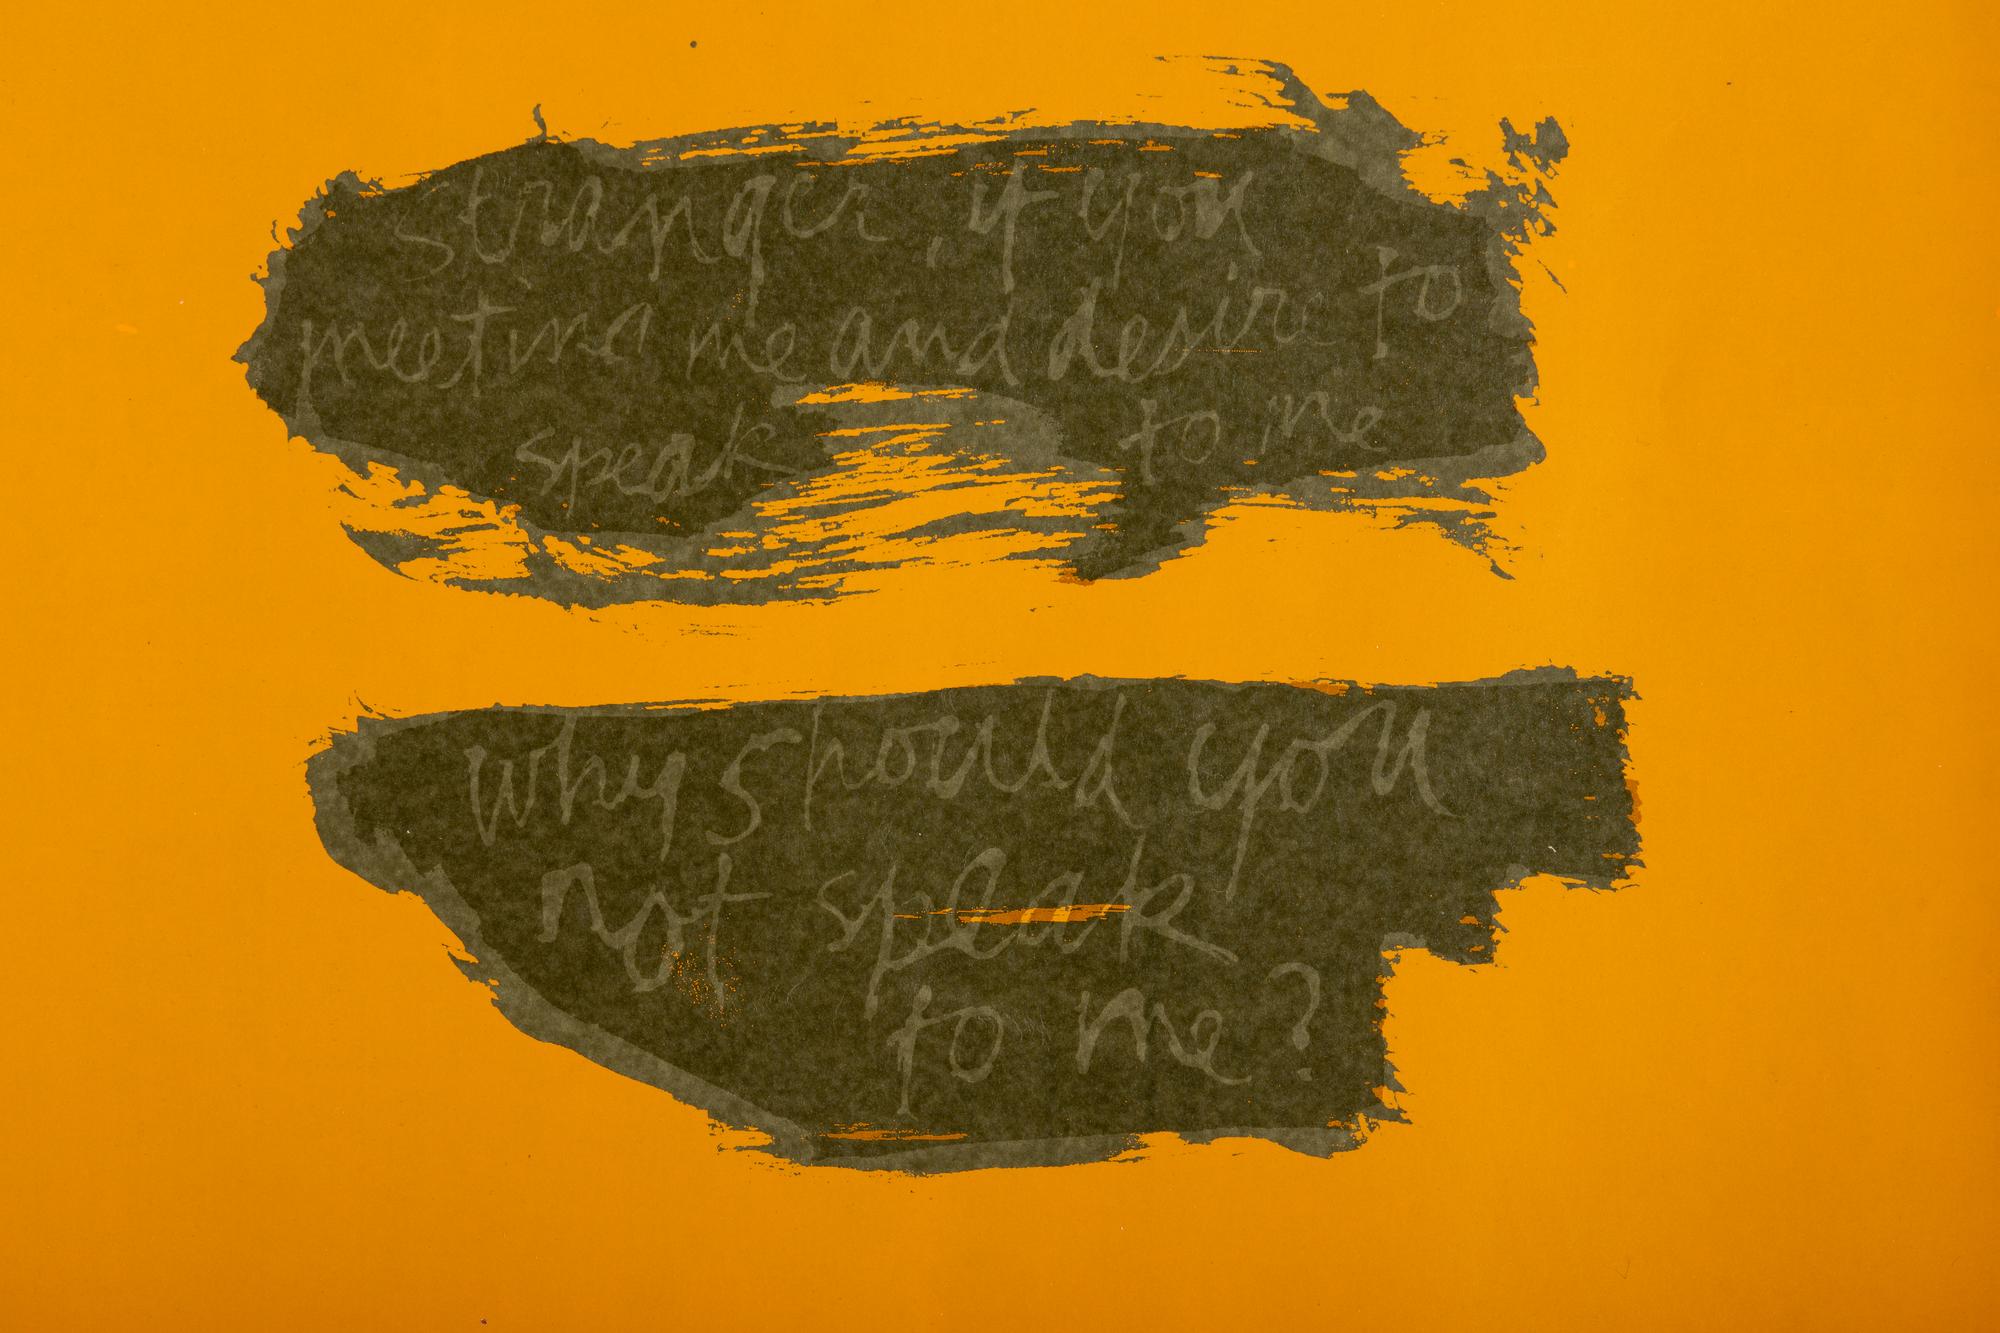 stranger, if you
meeting me and desire to
speak to me
why should you
not speak
to me?